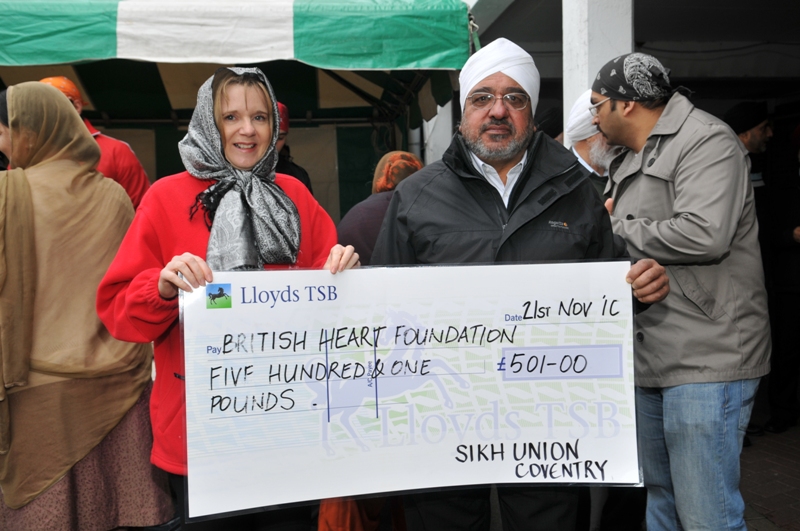 Lloyds TSB
Date 21ST NOV 10
Pay BRITISH HEART FOUNDATION
FIVE HUNDRED & ONE £ 501-00
POUNDS .
A/C Payee
Lloyds TSB
SIKH UNION
COVENTRY